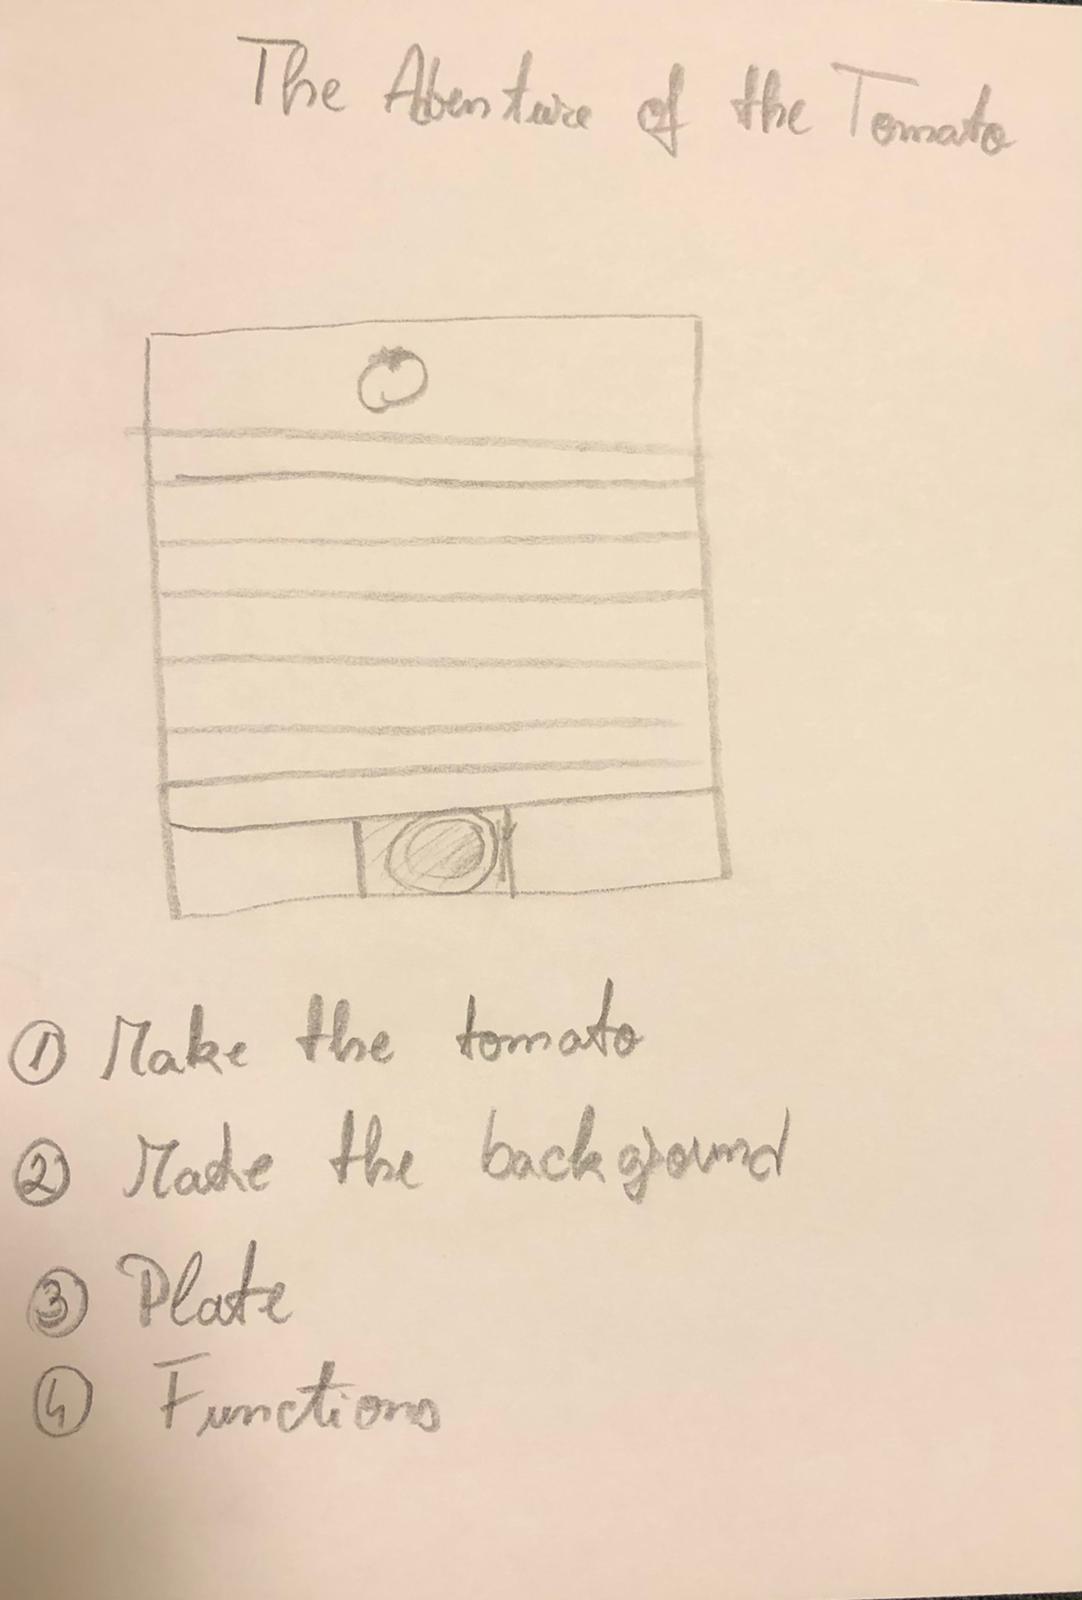 The Abenture of the Tomato
① Make the tomato
② Make the background
③ Plate
④ Functions